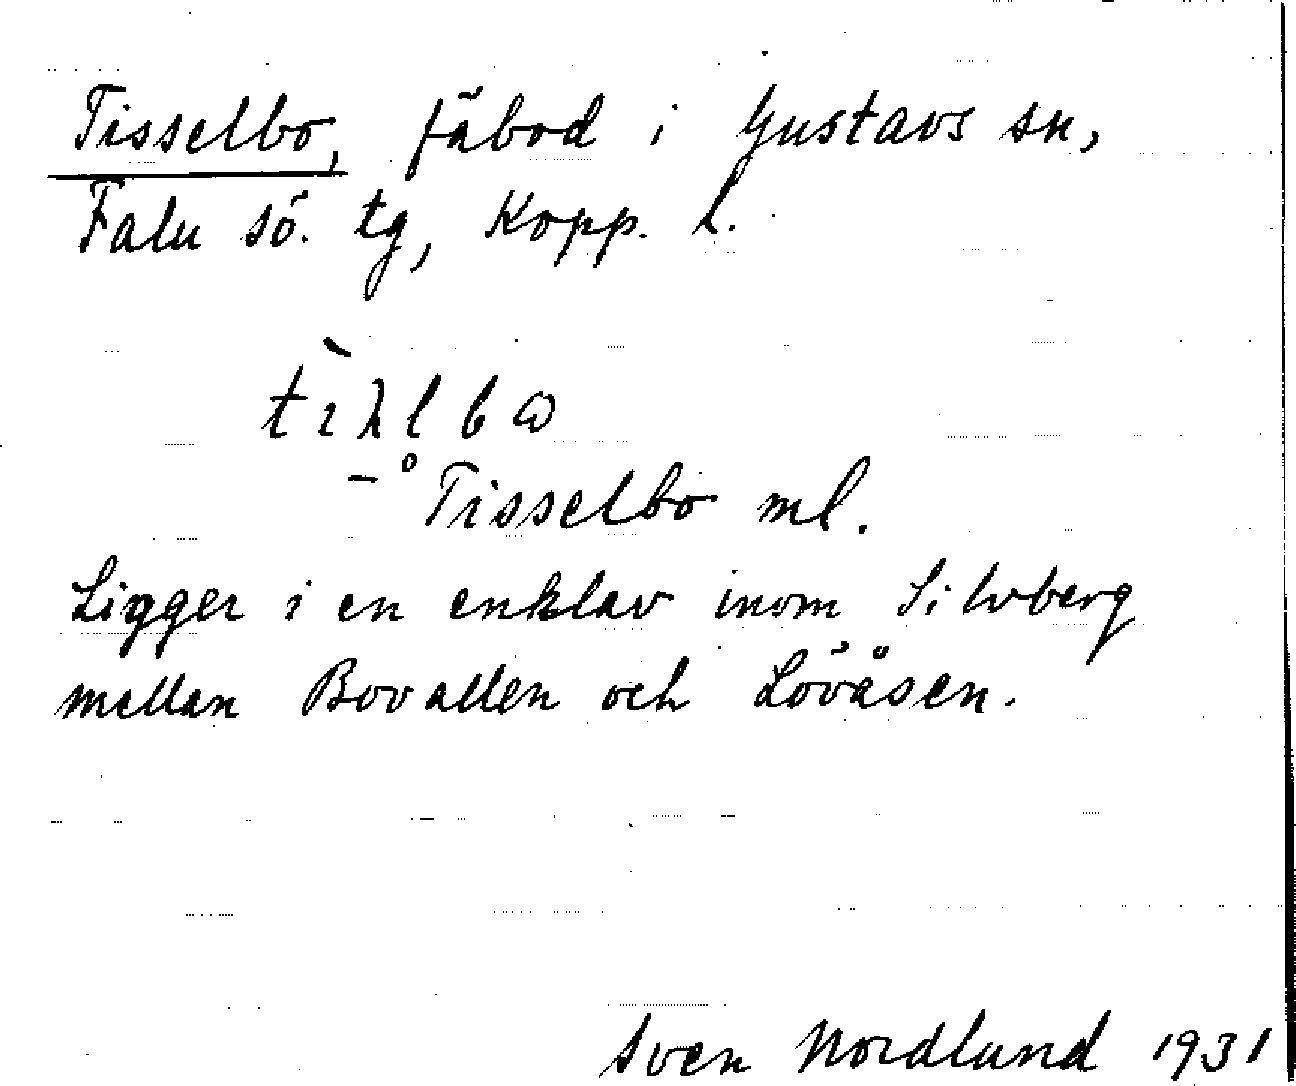 Tisselbo, fäbod i Gustavs sn,
Falu sö. tg, Kopp. l.
tìλlbω
Tisselbo ml.
Ligger i en enklav inom Silvberg
mellan Bovallen och Lövåsen.
Sven Nordlund 1931